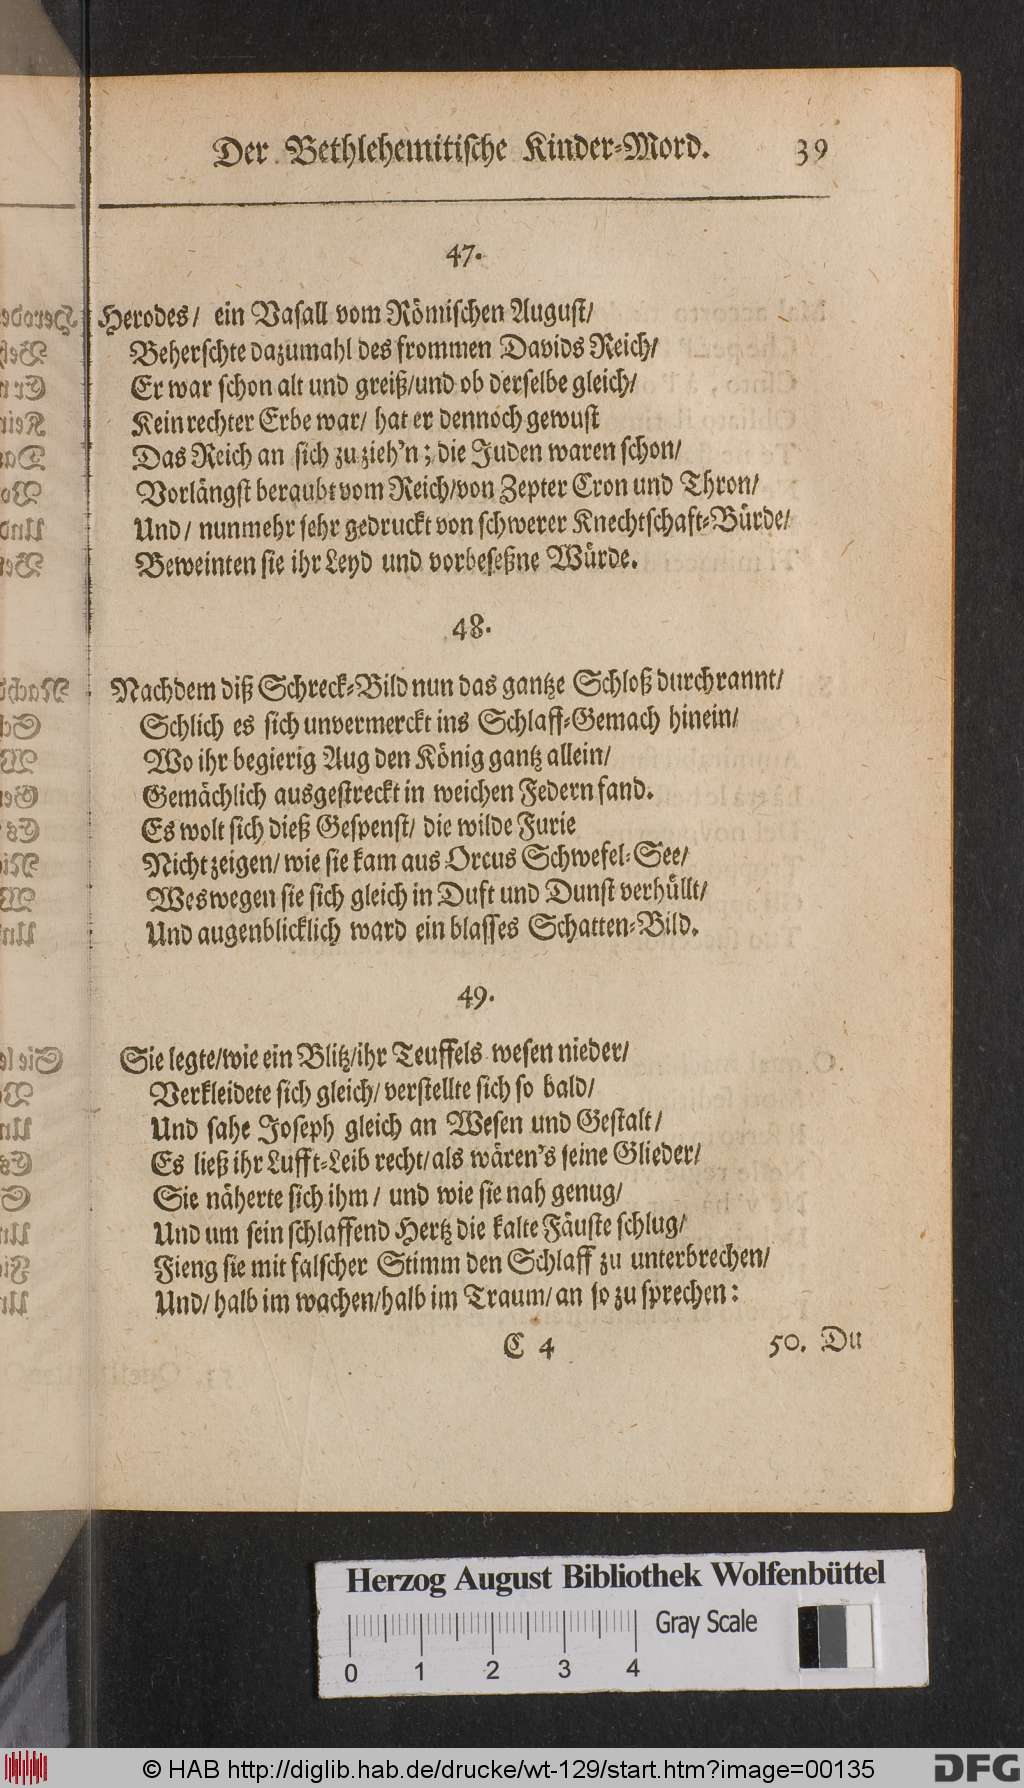 Der Bethlehemitische Kinder-Mord. 39
47.
Herodes/ ein Vasall vom Römischen August/
Beherschte dazumahl des frommen Davids Reich/
Er war schon alt und greiß/und ob derselbe gleich/
Kein rechter Erbe war/ hat er dennoch gewust
Das Reich an sich zu zieh'n; die Juden waren schon/
Vorlängst beraubt vom Reich/von Zepter Cron und Thron/
Und/ nunmehr sehr gedruckt von schwerer Knechtschaft-Bürde/
Beweinten sie ihr Leyd und vorbeseßne Würde.
48.
Nachdem diß Schreck-Bild nun das gantze Schloß durchrannt/
Schlich es sich unvermerckt ins Schlaff-Gemach hinein/
Wo ihr begierig Aug den König gantz allein/
Gemächlich ausgestreckt in weichen Federn fand.
Es wolt sich dieß Gespenst/ die wilde Furie
Nicht zeigen/ wie sie kam aus Orcus Schwefel-See/
Weswegen sie sich gleich in Duft und Dunst verhüllt/
Und augenblicklich ward ein blasses Schatten-Bild.
49.
Sie legte/wie ein Blitz/ihr Teuffels wesen nieder/
Verkleidete sich gleich/ verstellte sich so bald/
Und sahe Joseph gleich an Wesen und Gestalt/
Es ließ ihr Lufft-Leib recht/als wären's seine Glieder/
Sie näherte sich ihm/ und wie sie nah genug/
Und um sein schlaffend Hertz die kalte Fäuste schlug/
Fieng sie mit falscher Stimm den Schlaff zu unterbrechen/
Und/ halb im wachen/halb im Traum/ an so zu sprechen:
C 4 50. Du
Herzog August Bibliothek Wolfenbüttel
Gray Scale
0 1 2 3 4
© HAB http://diglib.hab.de/drucke/wt-129/start.htm?image=00135
DFG